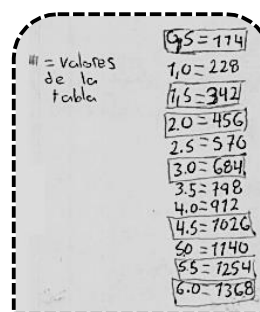 = valores
de la
tabla
0,5 = 114
1,0 = 228
1,5 = 342
2.0 = 456
2.5 = 570
3.0 = 684
3.5 = 798
4.0 = 912
4.5 = 1026
5.0 = 1140
5.5 = 1254
6.0 = 1368